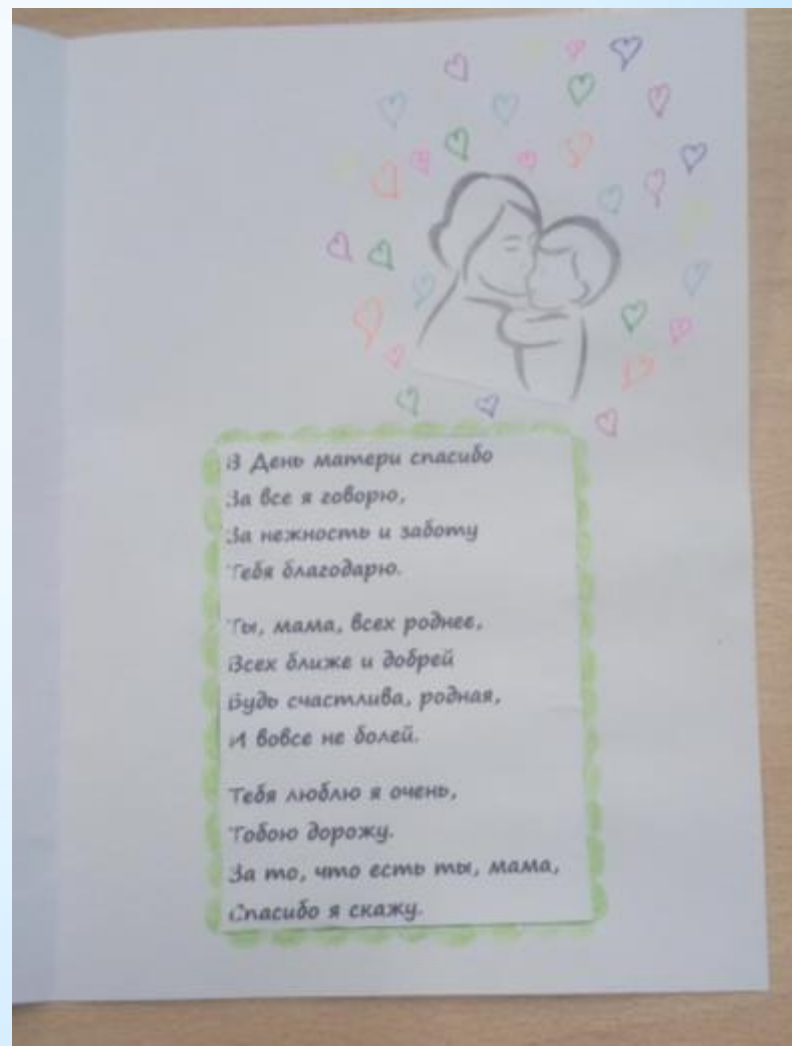 В День матери спасибо
За все я говорю,
За нежность и заботу
Тебя благодарю.
Ты, мама, всех роднее,
Всех ближе и добрей
Будь счастлива, родная,
И вовсе не болей.
Тебя люблю я очень,
Тобою дорожу.
За то, что есть ты, мама,
Спасибо я скажу.